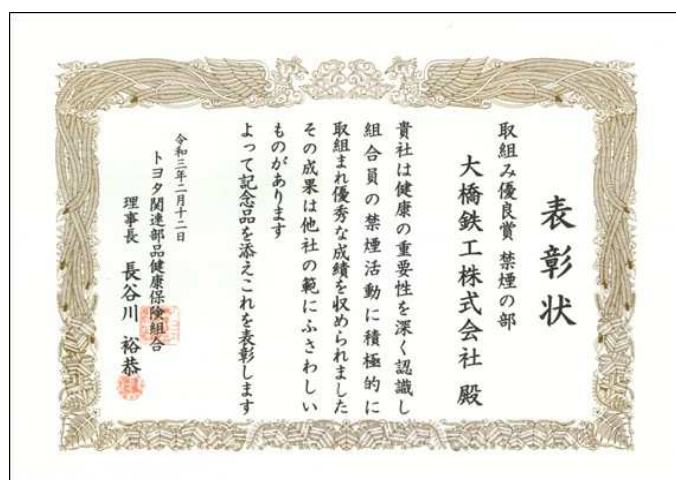 表彰状
取組み優良賞 禁煙の部
大橋鉄工株式会社 殿
貴社は健康の重要性を深く認識し
組合員の禁煙活動に積極的に
取組まれ優秀な成績を収められました
その成果は他社の範にふさわしい
ものがあります
よって記念品を添えこれを表彰します
令和三年二月十二日
トヨタ関連部品健康保険組合
理事長 長谷川 裕恭